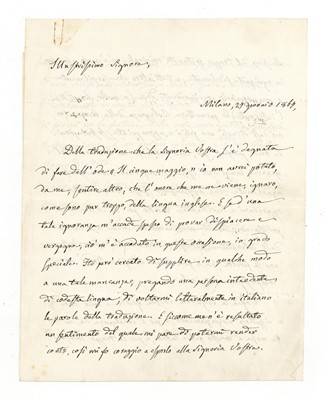 Illustrissimo Signore,
Milano, 29 gennaio 1869,
Della traduzione che la Signoria Vostra s'è degnata
di fare dell'ode Il cinque maggio, io non avrei potuto,
da me, sentire altro, che l'onore che me ne viene, ignaro,
come sono pur troppo, della lingua inglese. E se d'una
tale ignoranza m'accade spesso di provar dispiacere e
vergogna, ciò m'è accaduto in questa occasione, in grado
speciale. Ho però cercato di supplire in qualche modo
a una tale mancanza, pregando una persona intendente
di codesta lingua, di voltarmi letteralmente in italiano
le parole della traduzione. E siccome me n'è resultato
un sentimento del quale mi pare di potermi render
conto, così mi fo coraggio a esporlo alla Signoria Vostra.